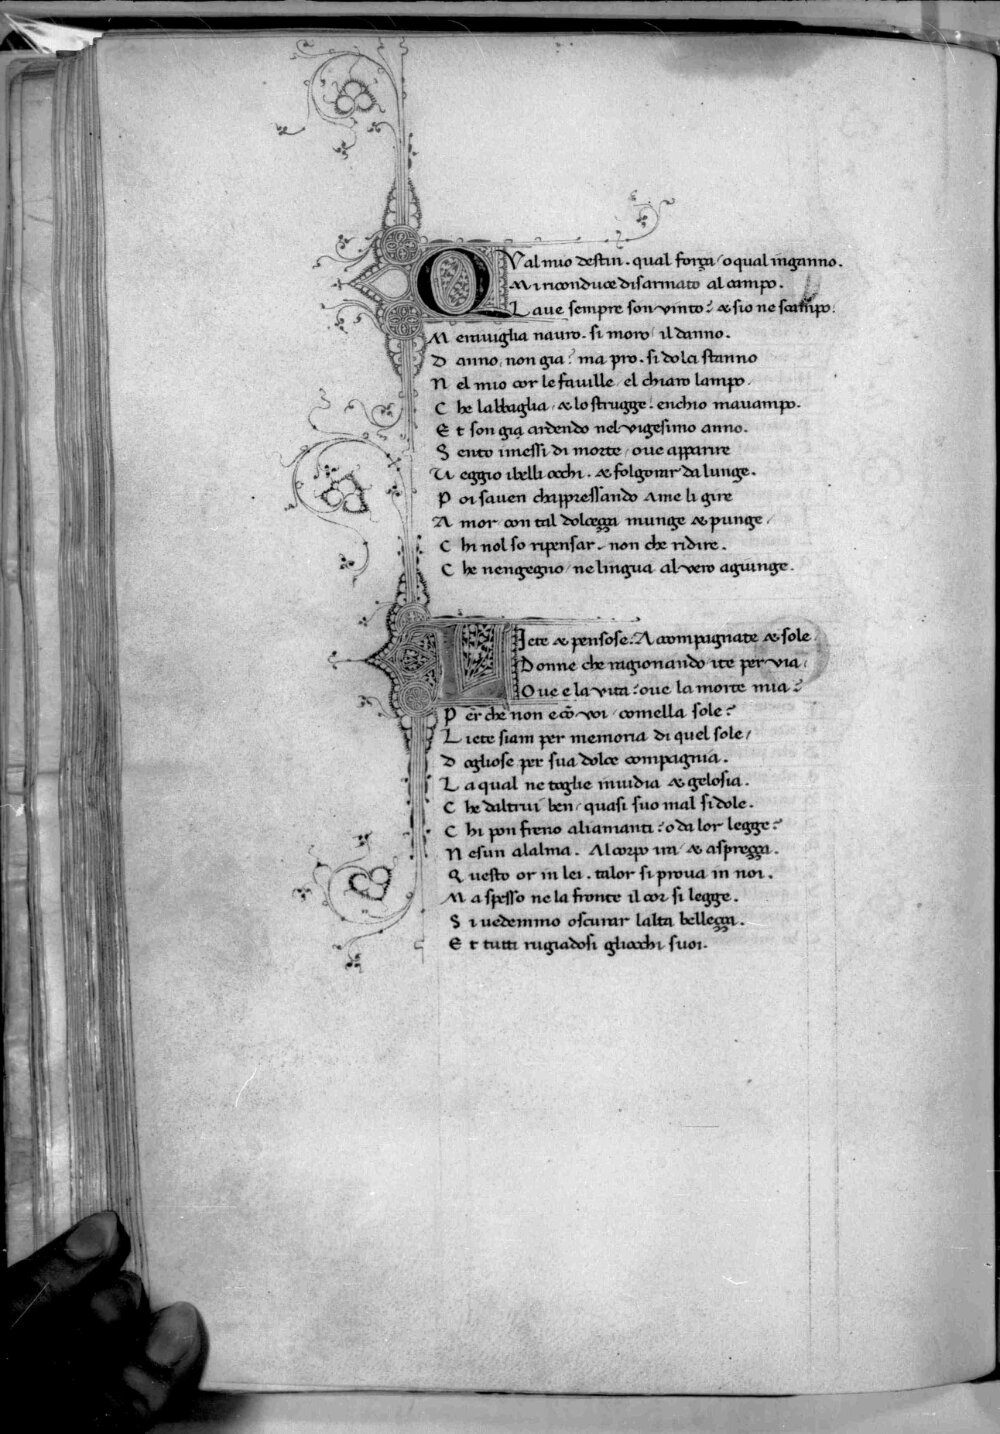 QVal mio destin. qual força/ o qual inganno.
Mi riconduce disarmato al campo.
Laue sempre son vinto? & sio ne scampo:
Merauiglia nauro. si moro/ il danno.
Danno, non gia? ma pro. si dolci stanno
Nel mio cor le fauille/ el chiaro lampo/
Che labbaglia/ & lo strugge. enchio mauampo.
Et son gia ardendo nel vigesimo anno.
Sento imessi di morte/ oue apparire
Veggio ibelli occhi. & folgorar da lunge.
Poi sauen chappressando Ame li gire
Amor con tal dolceçça munge & punge/
Chi nol so ripensar. non che ridire.
Che nengegno/ ne lingua al vero agiunge.
LIete & pensose: Acompagnate & sole/
Donne che ragionando ite per via/
Oue e la vita? oue la morte mia?
Perche non e cō voi/ comella sole?
Liete siam per memoria di quel sole/
Dogliose per sua dolce compagnia.
La qual ne toglie inuidia & gelosia.
Che daltrui ben/ quasi suo mal si dole.
Chi pon freno aliamanti? o da lor legge?
Nesun alalma. Al corpo ira/ & aspreçça.
Questo or in lei. talor si proua in noi.
Ma spesso ne la fronte il cor si legge.
Si uedemmo oscurar lalta belleçça.
Et tutti rugiadosi gliocchi suoi.